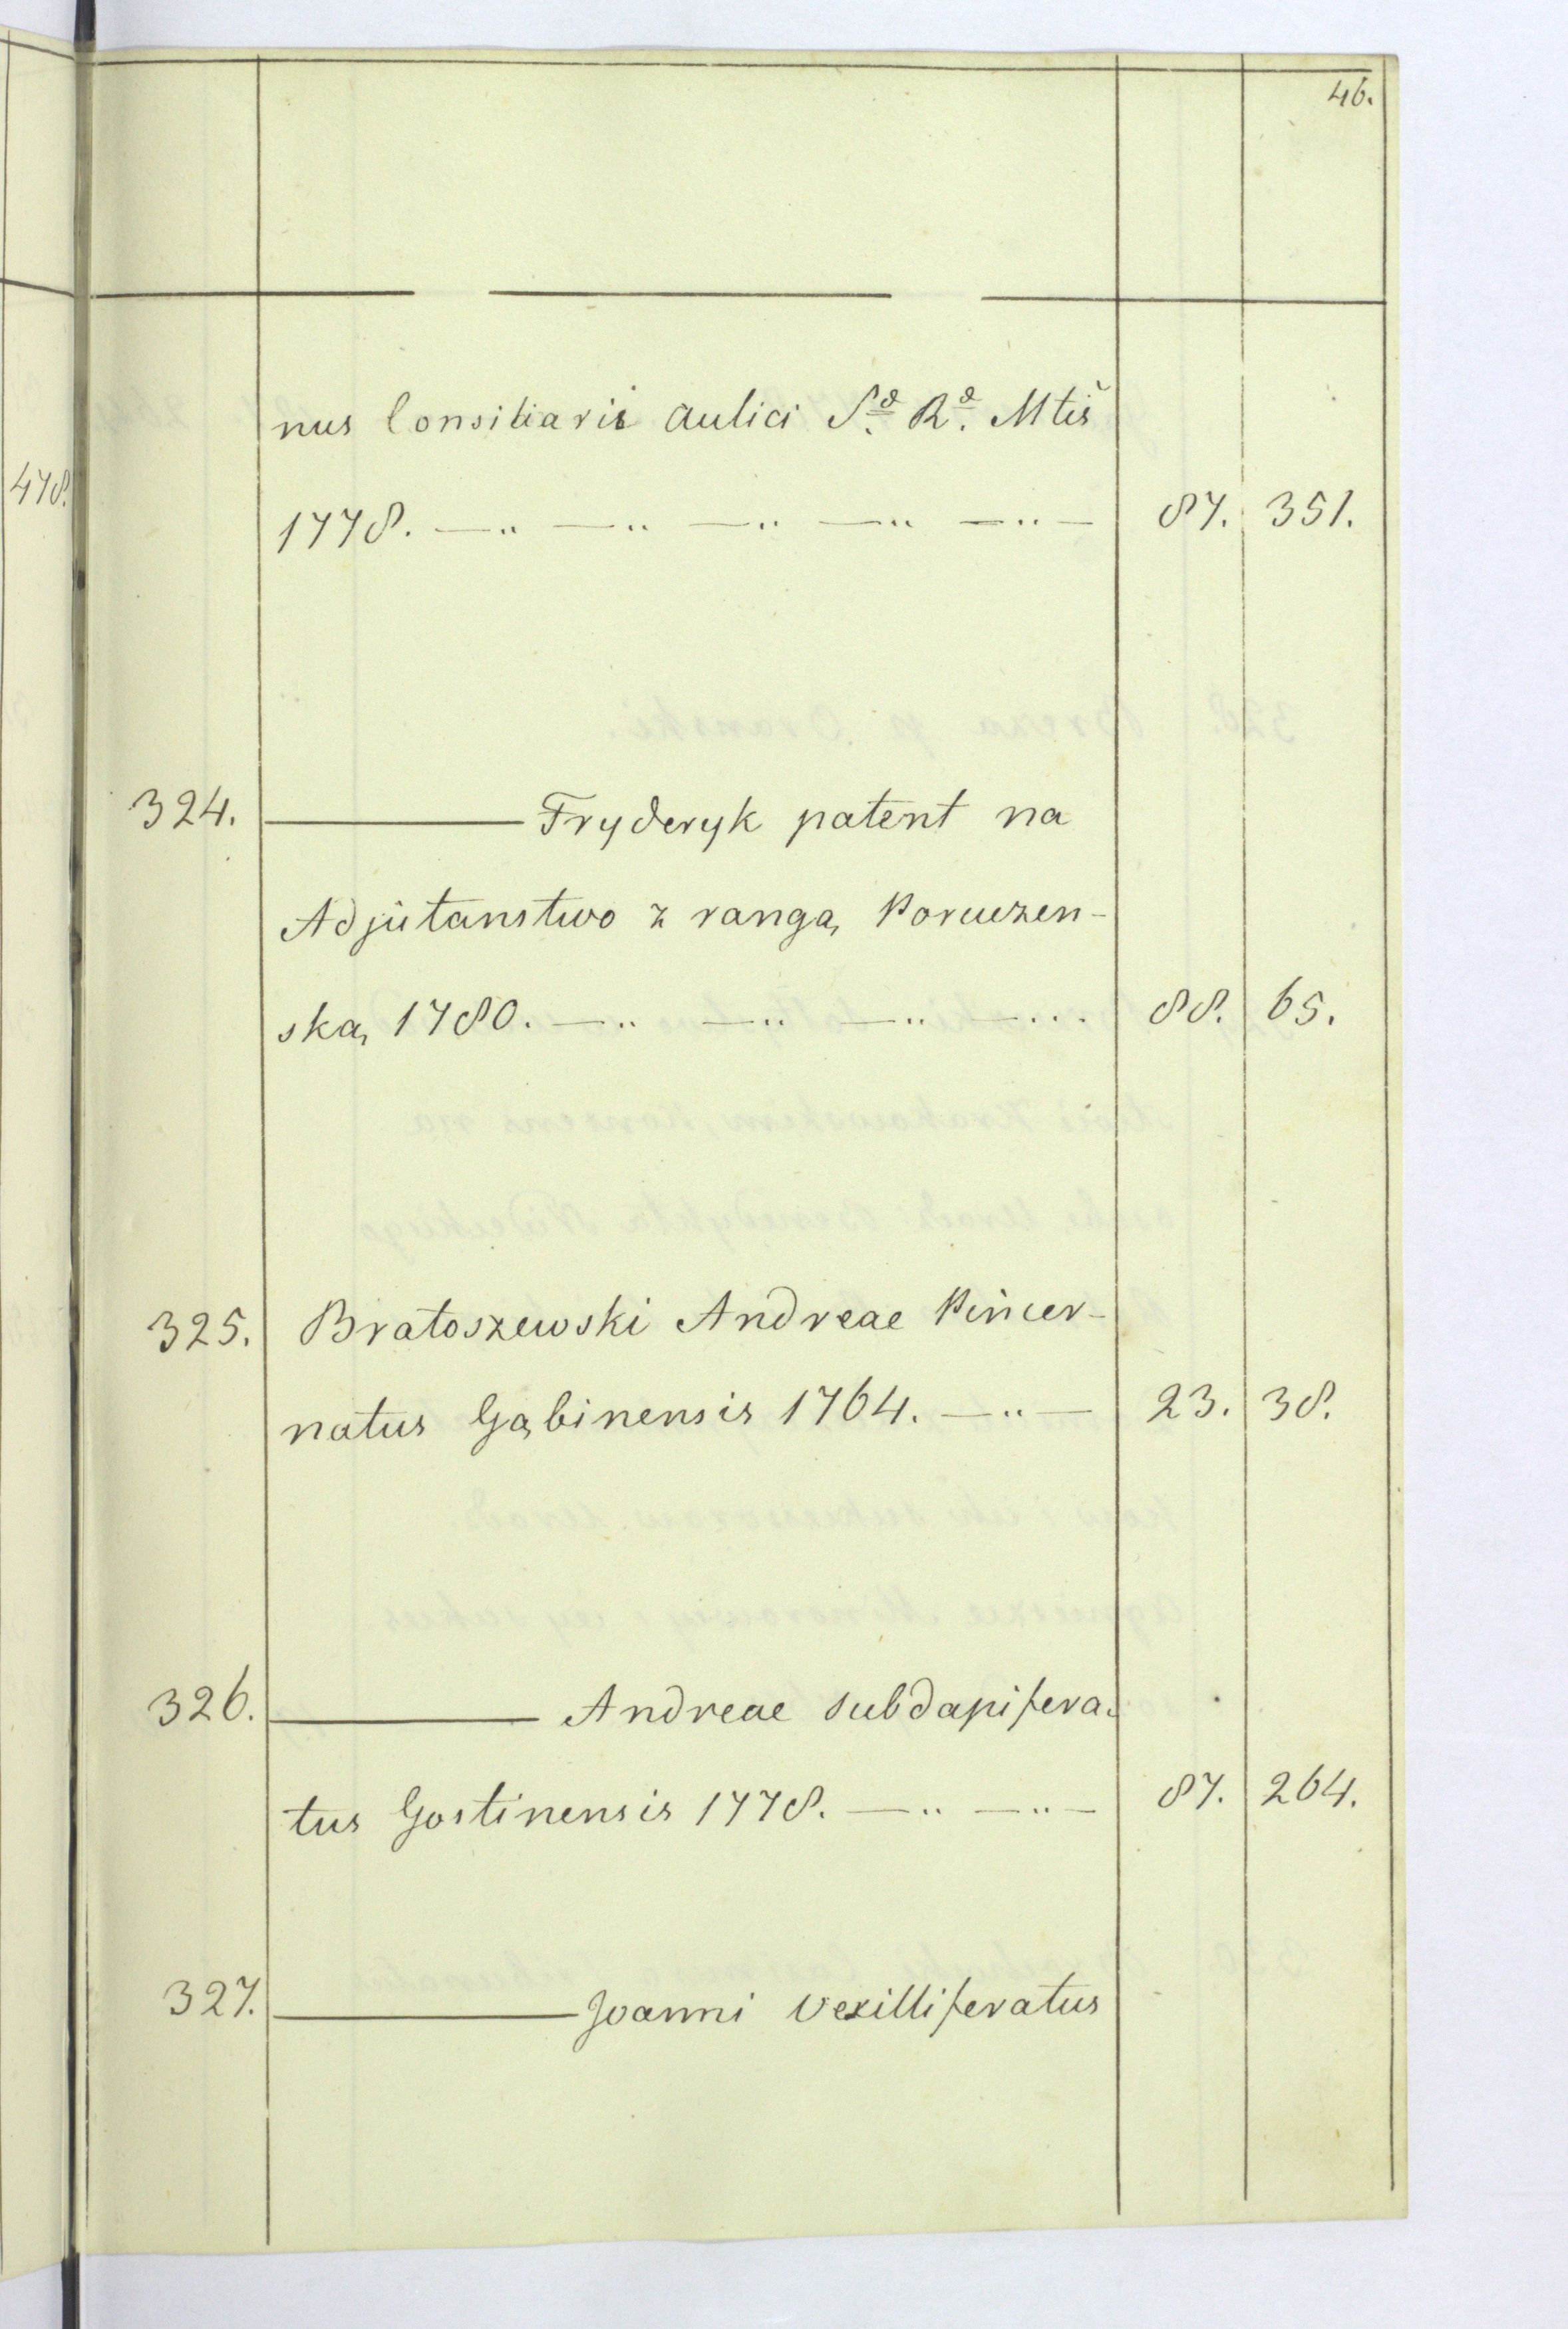 46.
nus Consiliarii aulici S.ae R.ae Mtis
478. 1778. —„ —„ —„ —„ —„— 87. 351.
324. ——— Fryderyk patent na
Adjutanstwo z rangą Poruczen-
ską 1780. —„ —„ —„ —... 88. 65.
325. Bratoszewski Andreae Pincer-
natus Gąbinensis 1764. —„— 23. 38.
326. ——— Andreae subdapifera-
tus Gostinensis 1778. —„ —„— 87. 264.
327. ——— Joanni Vexilliferatus